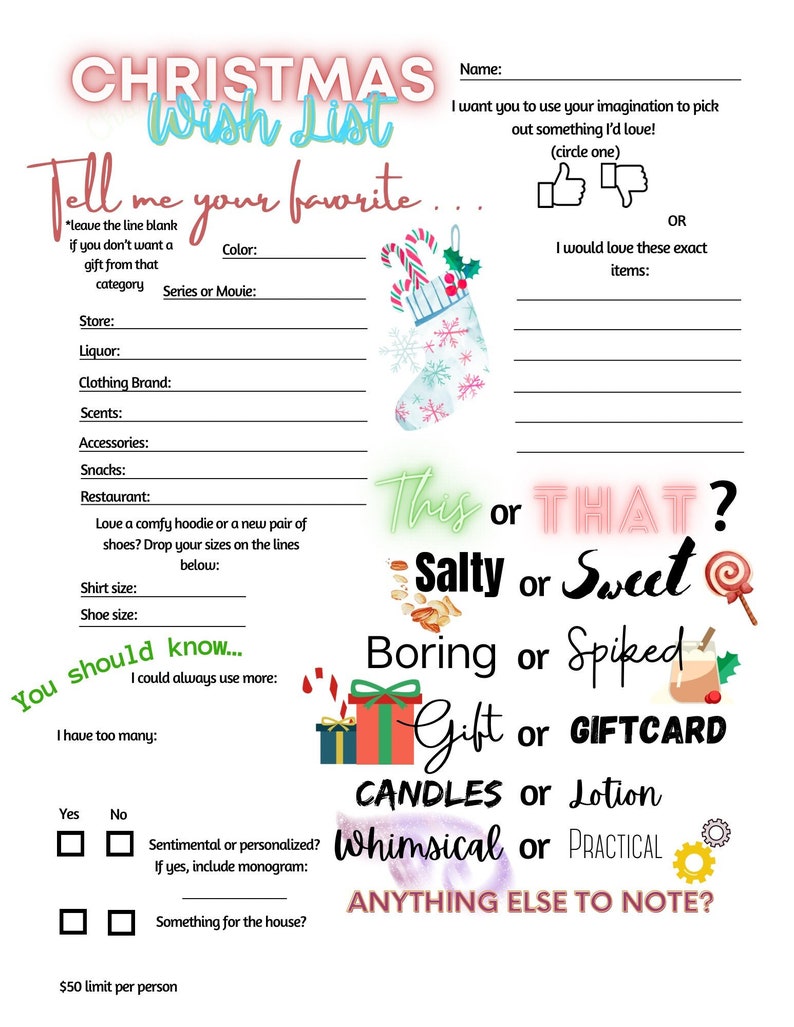 CHRISTMAS
Wish List
Name:
I want you to use your imagination to pick
out something I'd love!
(circle one)
OR
I would love these exact
items:
Tell me your favorite . . .
*leave the line blank
if you don't want a
gift from that
category
Color:
Series or Movie:
Store:
Liquor:
Clothing Brand:
Scents:
Accessories:
Snacks:
Restaurant:
Love a comfy hoodie or a new pair of
shoes? Drop your sizes on the lines
below:
Shirt size:
Shoe size:
You should know...
I could always use more:
I have too many:
Yes No
Sentimental or personalized?
If yes, include monogram:
Something for the house?
$50 limit per person
This or THAT ?
Salty or Sweet
Boring or Spiked
Gift or GIFTCARD
CANDLES or Lotion
Whimsical or PRACTICAL
ANYTHING ELSE TO NOTE?